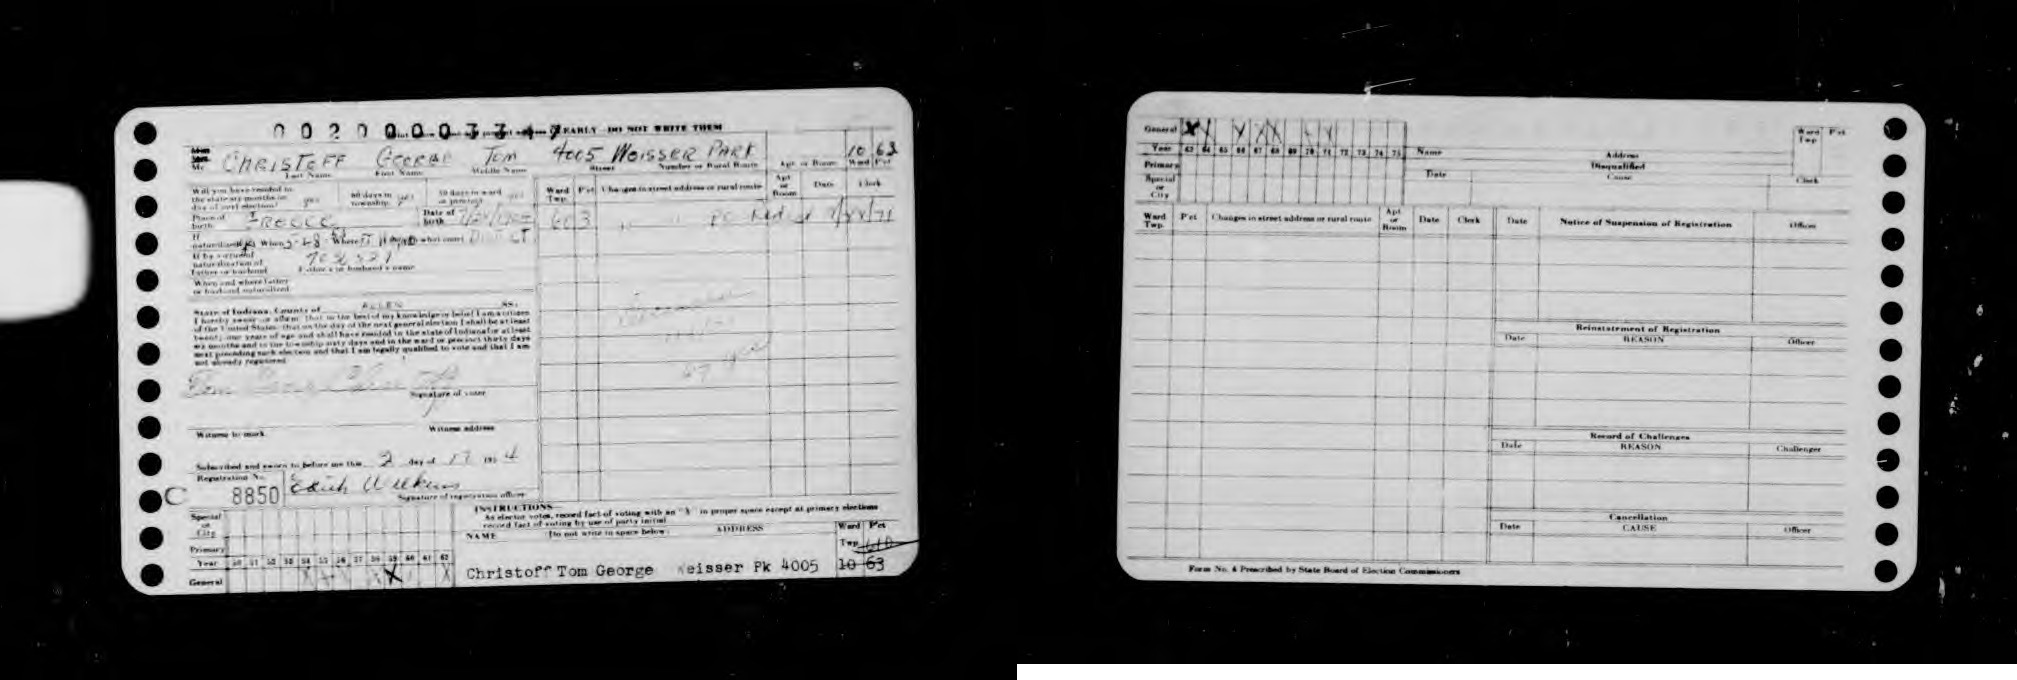 0020000334 EARLY - DO NOT WRITE THEM
Mr. CHRISTOFF GEORGE TOM 4005 WEISSER PARK 10 63
Last Name First Name Middle Name Street Number or Rural Route Apt or Room Ward Pct
Will you have resided in the state six months on day of next election? yes 60 days in township yes 30 days in ward or precinct yes
Ward Twp. Pct Changes in street address or rural route Apt or Room Date Clerk
Place of birth GREECE Date of birth
If naturalized yes When Where through what court DIST CT
If by virtue of naturalization of Father or husband
Father's or husband's name
When and where father or husband naturalized
State of Indiana, County of ALLEN SS:
I hereby swear or affirm that to the best of my knowledge or belief I am a citizen
of the United States, that on the day of the next general election I shall be at least
twenty-one years of age and shall have resided in the state of Indiana for at least
six months and in the township sixty days and in the ward or precinct thirty days
next preceding such election and that I am legally qualified to vote and that I am
not already registered.
Tom George Christoff
Signature of voter
Witness to mark Witness address
Subscribed and sworn to before me this 2 day of 17 195 4
Registration No.
C 8850 Edith Wilkins
Signature of registration officer
INSTRUCTIONS
As elector votes, record fact of voting with an "X" in proper space except at primary elections
record fact of voting by use of party initial
Special or City
NAME (Do not write in space below) ADDRESS Ward Pct
Primary Twp
Year 50 51 52 53 54 55 56 57 58 59 60 61 62
General
Christoff Tom George Weisser Pk 4005 10 63
General
Year 63 64 65 66 67 68 69 70 71 72 73 74 75 Name Address Ward Twp Pct
Primary Disqualified
Special or City Date Cause Clerk
Ward Twp. Pct Changes in street address or rural route Apt or Room Date Clerk Date Notice of Suspension of Registration Officer
Reinstatement of Registration
Date REASON Officer
Record of Challenges
Date REASON Challenger
Cancellation
Date CAUSE Officer
Form No. 4 Prescribed by State Board of Election Commissioners